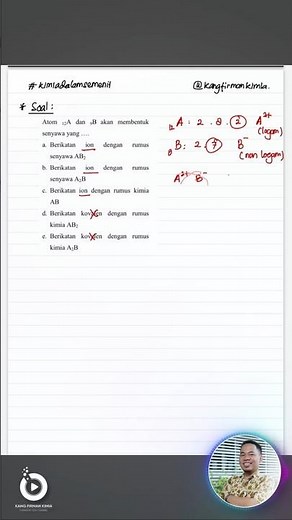 #kimiadalamsemenit
@kangfirmankimia.
* Soal :
Atom ₁₂A dan ₉B akan membentuk
senyawa yang ....
a. Berikatan ion dengan rumus
senyawa AB₂
b. Berikatan ion dengan rumus
senyawa A₂B
c. Berikatan ion dengan rumus kimia
AB
d. Berikatan kovalen dengan rumus
kimia AB₂
e. Berikatan kovalen dengan rumus
kimia A₂B
₁₂A : 2 . 8 . 2 A²⁺
(logam)
₉B : 2 . 7 B⁻
(non logam)
A²⁺ B⁻
KANG FIRMAN KIMIA